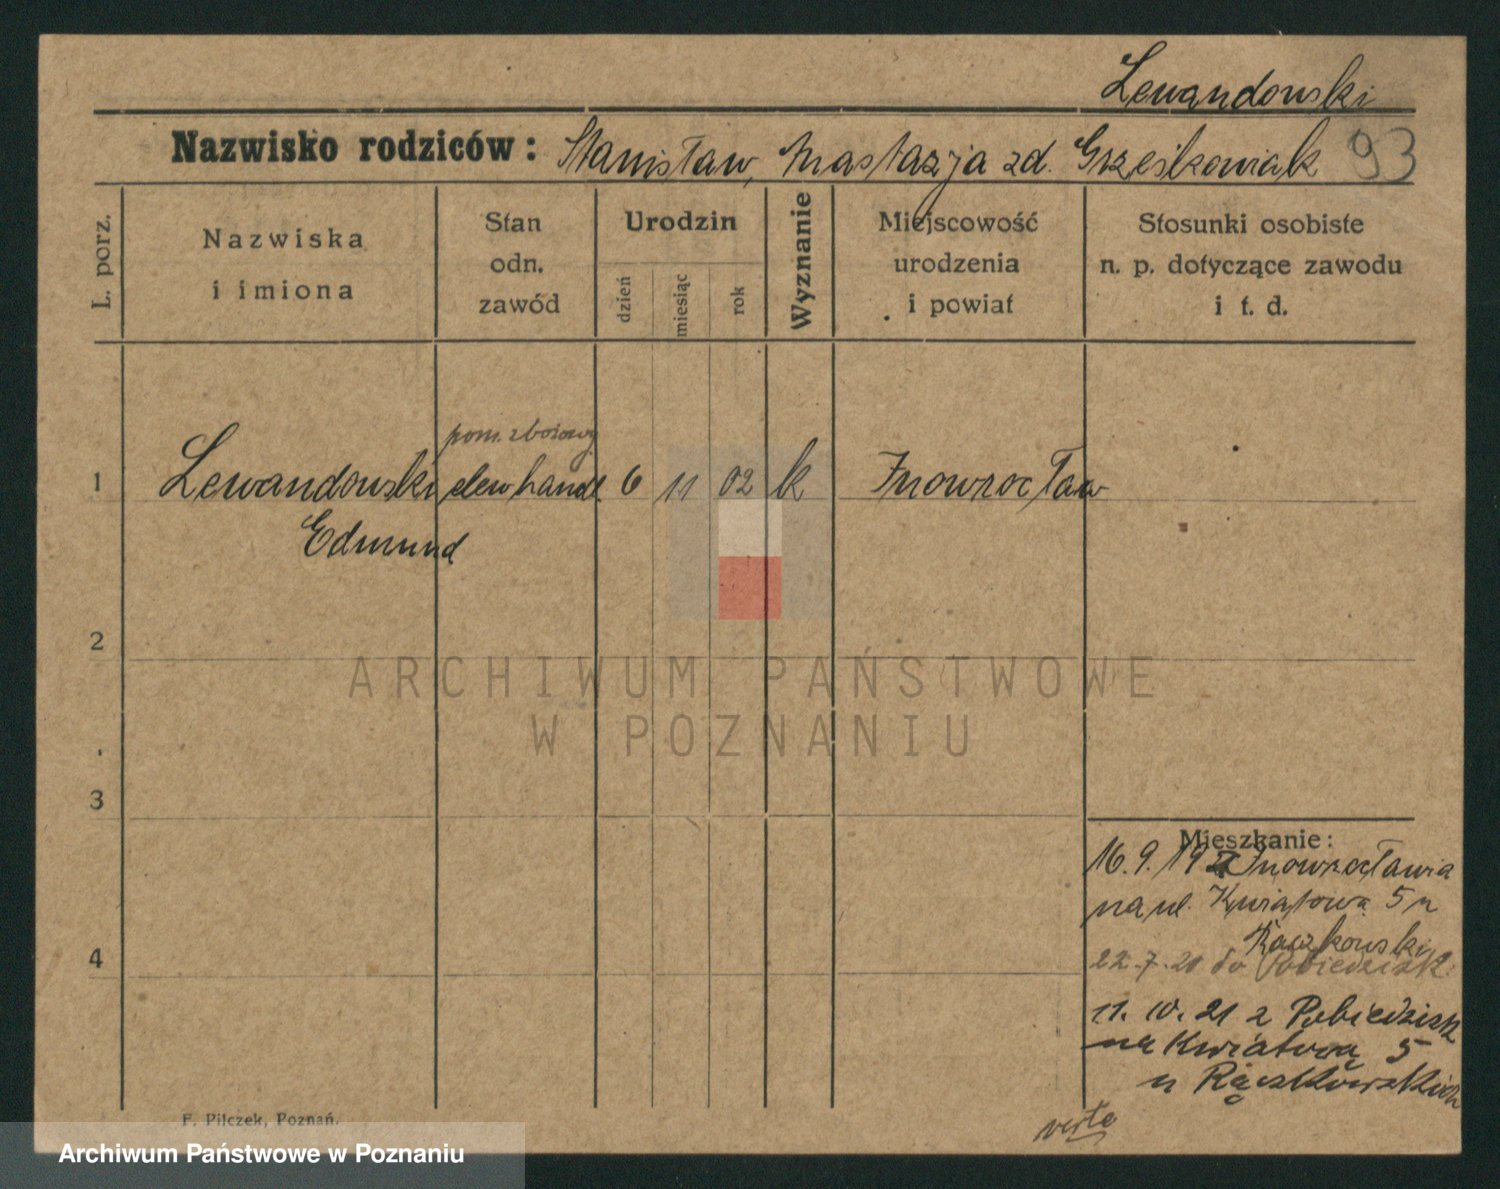 Lewandowski
Nazwisko rodziców: Stanisław, Anastazja zd. Grześkowiak 93
L. porz.
Nazwiska
i imiona
Stan
odn.
zawód
Urodzin
dzień
miesiąc
rok
Wyznanie
Miejscowość
urodzenia
i powiat
Stosunki osobiste
n. p. dotyczące zawodu
i t. d.
pom. zbożowy
1 Lewandowski elew handl. 6 11 02 k Inowrocław
Edmund
2
ARCHIWUM PAŃSTWOWE
W POZNANIU
3
Mieszkanie:
16.9.19 z Inowrocławia
na ul. Kwiatową 5 u
Raczkowski
4
22.7.21 do Pobiedzisk
11.10.21 z Pobiedzisk
na Kwiatową 5
u Rączkowskich
F. Pilczek, Poznań.
verte
Archiwum Państwowe w Poznaniu